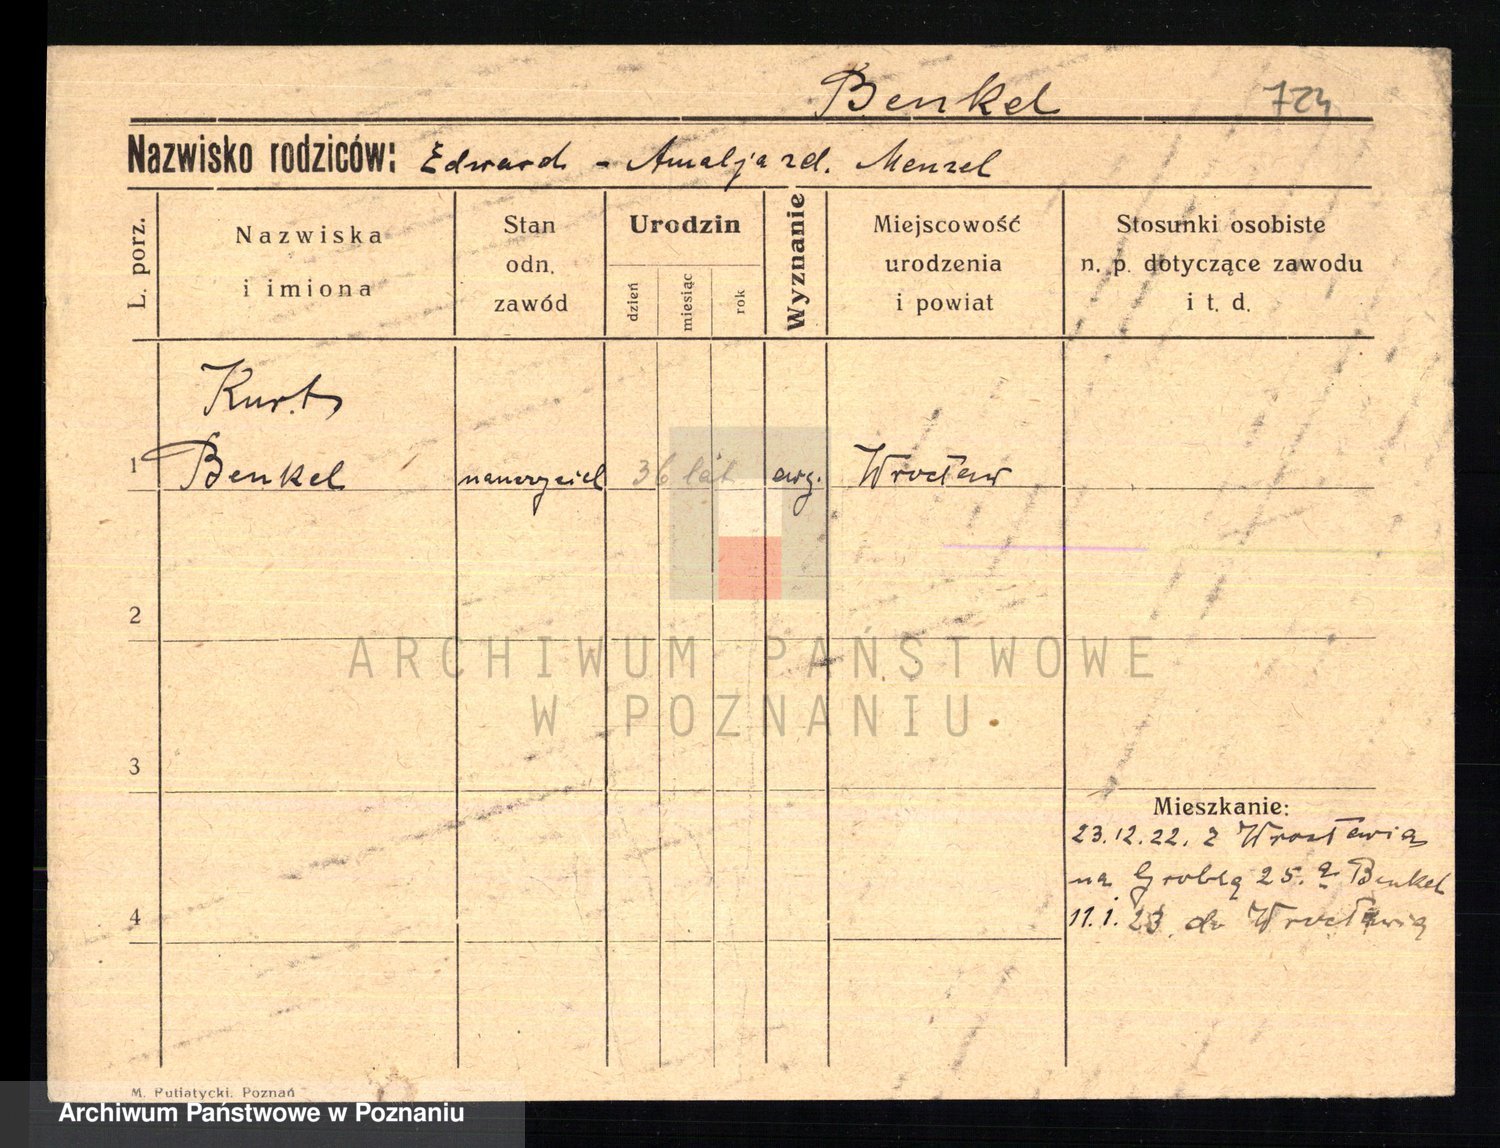 Benkel 724
Nazwisko rodziców: Edward - Amalja zd. Menzel
L. porz.
Nazwiska
i imiona
Stan
odn.
zawód
Urodzin
dzień
miesiąc
rok
Wyznanie
Miejscowość
urodzenia
i powiat
Stosunki osobiste
n. p. dotyczące zawodu
i t. d.
Kurt
1 Benkel nauczyciel 36 lat ewg. Wrocław
2
ARCHIWUM PAŃSTWOWE
W POZNANIU
3
Mieszkanie:
23.12.22. z Wrocławia
na Groblą 25. a Benkel
4 11.1.23 do Wrocławia
M. Putiatycki. Poznań
Archiwum Państwowe w Poznaniu